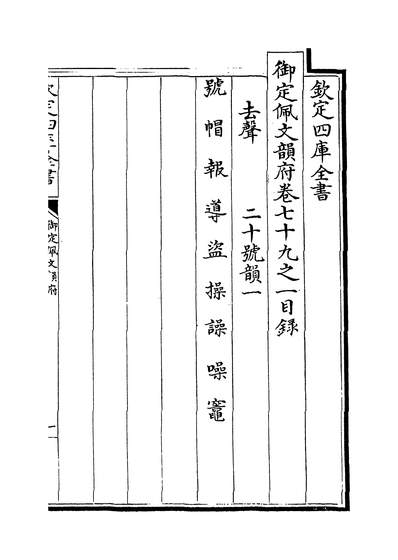 欽定四庫全書
御定佩文韻府卷七十九之一目錄
去聲 二十號韻一
號 帽 報 導 盜 操 譟 噪 竈
欽定四庫全書
御定佩文韻府
一